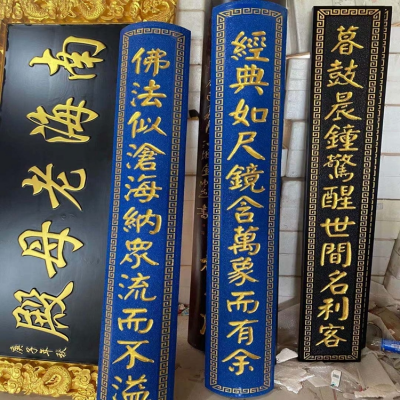 南海老母殿
庚子年秋
佛法似滄海納眾流而不溢
經典如尺鏡含萬象而有余
暮鼓晨鐘驚醒世間名利客